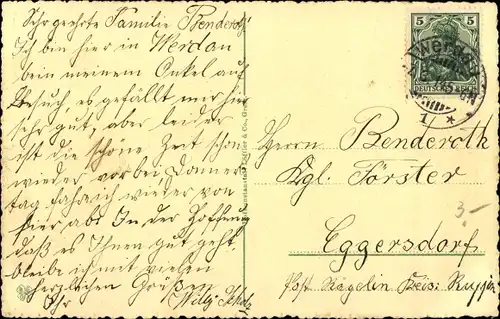 Sehr geehrte Familie Benderoth
Ich bin hier in Werdau
bein meinem Onkel auf
Besuch, es gefällt mir hier
sehr gut, aber leider
ist die schöne Zeit schon
wieder vorbei Donners
tag fahre ich wieder von
hier ab. In der Hoffnung
daß es Ihnen gut geht
bleibe ich mit vielen
herzlichen Grüßen
Ihr Willy
5 5
DEUTSCHES REICH
Werdau
1 *
Herrn Benderoth
Kgl. Förster
3-
Eggersdorf
Post Kägelin Kreis. Ruppin